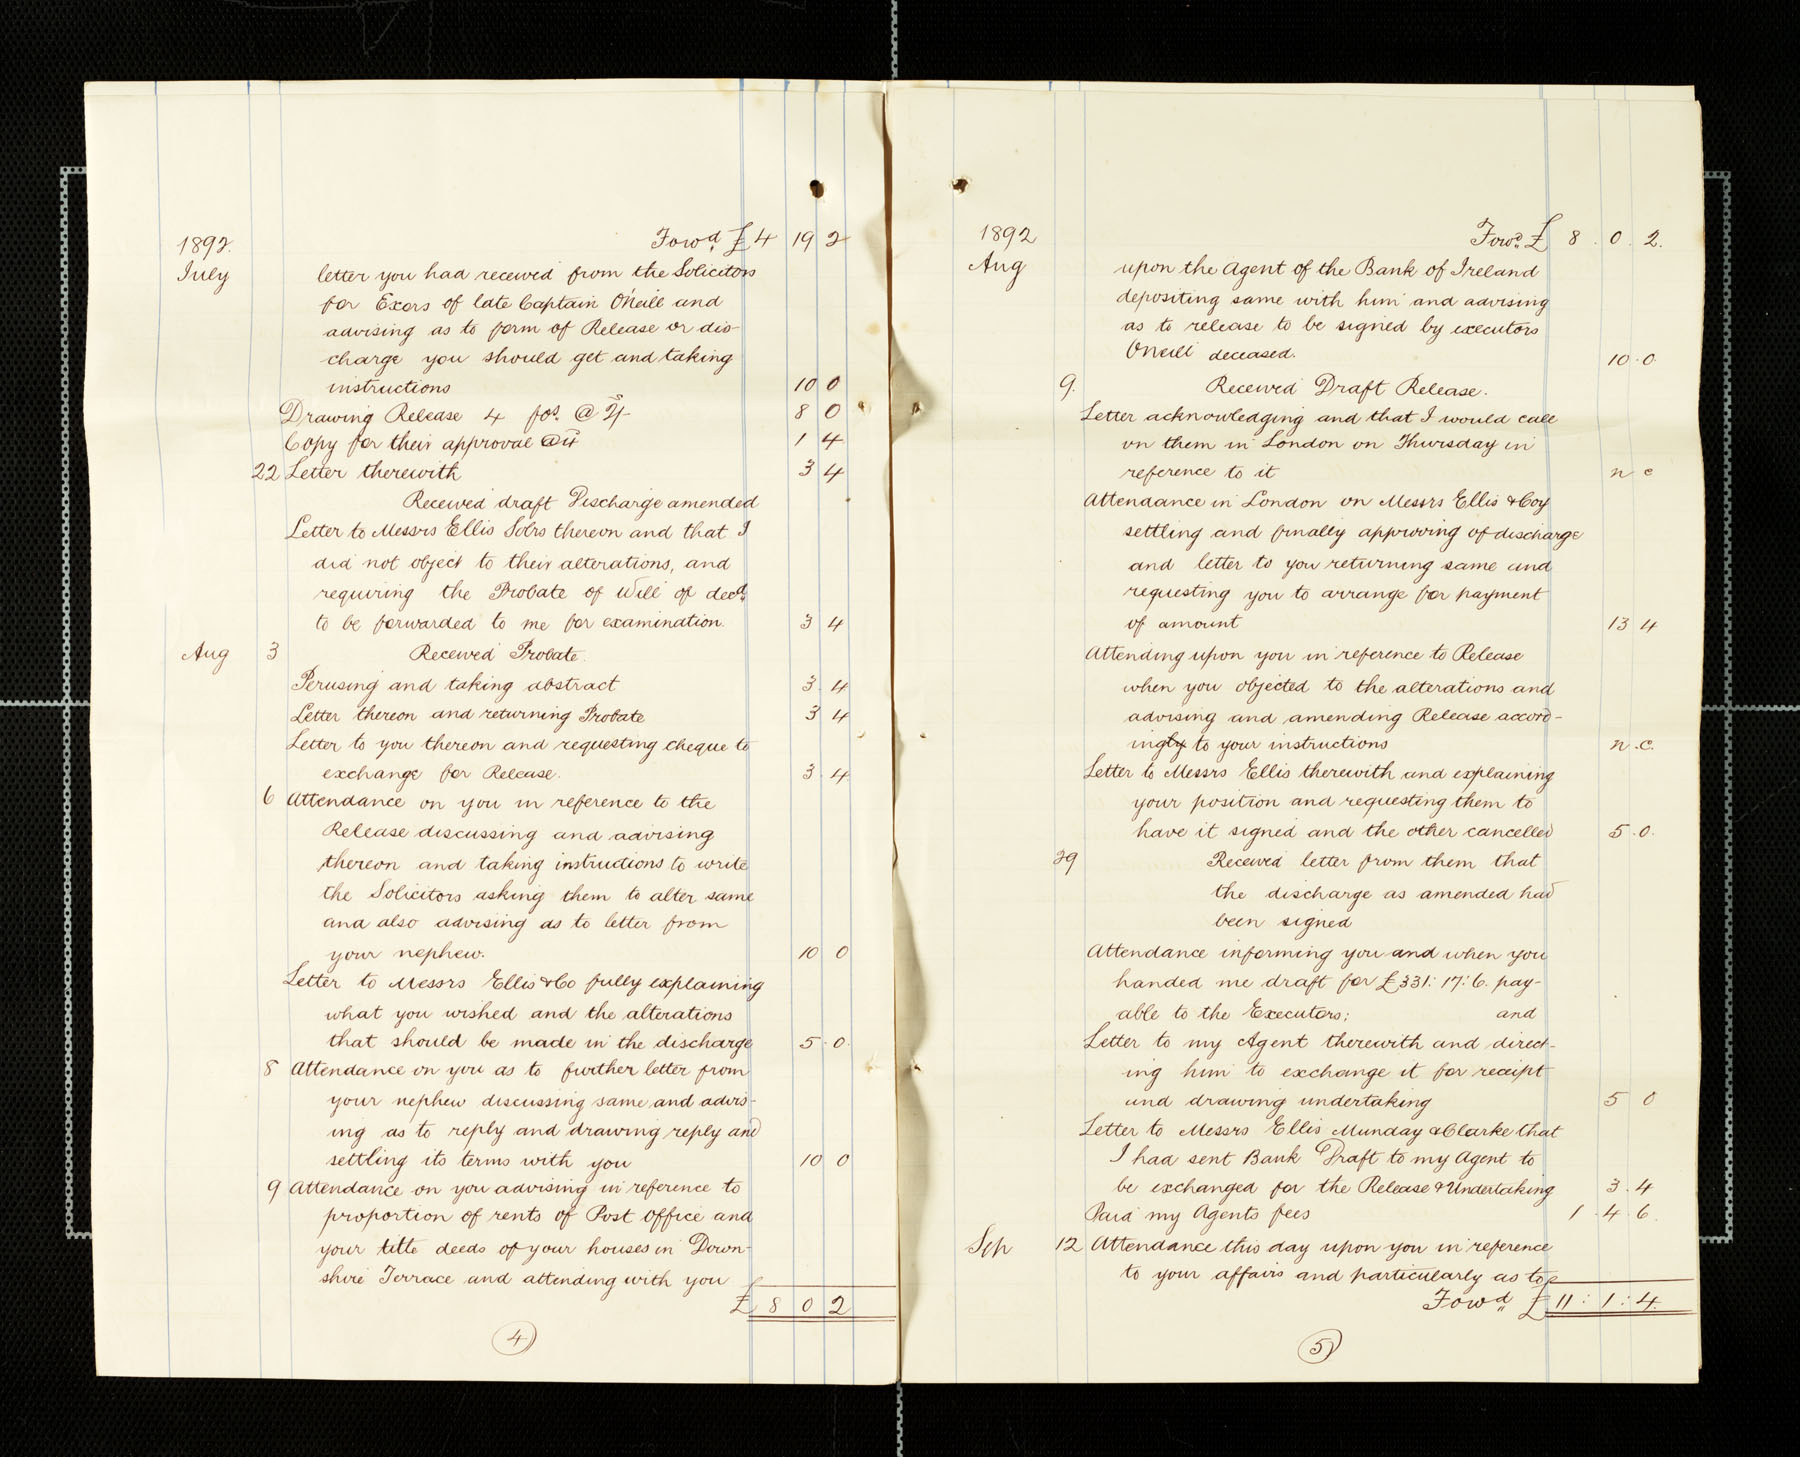 1892. Fowd £ 4 19 2
July letter you had received from the Solicitors
for Exors of late Captain O'Neill and
advising as to form of Release or dis-
charge you should get and taking
instructions 10 0
Drawing Release 4 fos. @ 2/- 8 0
Copy for their approval @ 4d 1 4
22 Letter therewith 3 4
Received draft Discharge amended
Letter to Messrs Ellis Solrs thereon and that I
did not object to their alterations, and
requiring the Probate of Will of decd.
to be forwarded to me for examination. 3 4
Aug 3 Received Probate.
Perusing and taking abstract 3 . 4
Letter thereon and returning Probate 3 4
Letter to you thereon and requesting cheque to
exchange for Release. 3 . 4
6 Attendance on you in reference to the
Release discussing and advising
thereon and taking instructions to write
the Solicitors asking them to alter same
and also advising as to letter from
your nephew. 10 0
Letter to Messrs Ellis & Co fully explaining
what you wished and the alterations
that should be made in the discharge 5 . 0.
8 Attendance on you as to further letter from
your nephew discussing same and advis-
ing as to reply and drawing reply and
settling its terms with you 10 0
9 Attendance on you advising in reference to
proportion of rents of Post Office and
your title deeds of your houses in Down-
shire Terrace and attending with you
£ 8 0 2
4
1892 Fowd. £ 8 . 0 . 2.
Aug upon the Agent of the Bank of Ireland
depositing same with him and advising
as to release to be signed by executors
O'Neill deceased. 10 . 0.
9. Received Draft Release.
Letter acknowledging and that I would call
on them in London on Thursday in
reference to it n c
Attendance in London on Messrs Ellis & Coy
settling and finally approving of discharge
and letter to you returning same and
requesting you to arrange for payment
of amount 13 4
Attending upon you in reference to Release
when you objected to the alterations and
advising and amending Release accord-
ingly to your instructions n . c.
Letter to Messrs Ellis therewith and explaining
your position and requesting them to
have it signed and the other cancelled 5 . 0.
29 Received letter from them that
the discharge as amended had
been signed
Attendance informing you and when you
handed me draft for £331: 17: 6. pay-
able to the Executors; and
Letter to my Agent therewith and direct-
ing him to exchange it for receipt
and drawing undertaking 5 0
Letter to Messrs Ellis Munday & Clarke that
I had sent Bank Draft to my Agent to
be exchanged for the Release & Undertaking 3 . 4
Paid my Agents fees 1 . 4 . 6.
Sep 12 Attendance this day upon you in reference
to your affairs and particularly as to
Fowd £ 11 : 1 : 4.
5